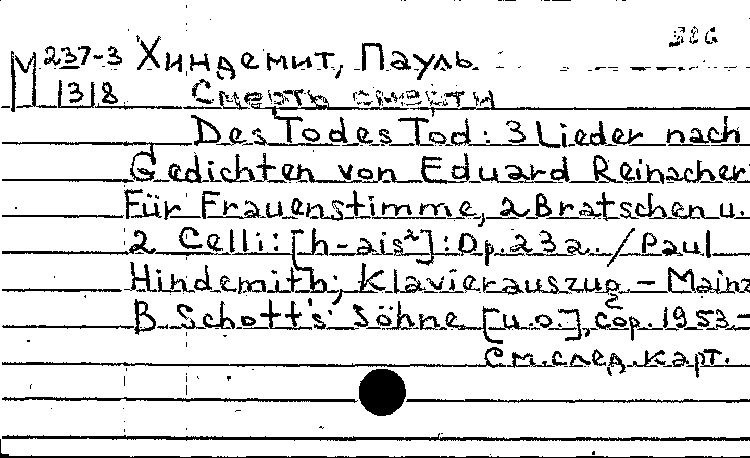 M 237-3 Хиндемит, Пауль
1318 Смерть смерти
Des Todes Tod: 3 Lieder nach
Gedichten von Eduard Reinacher
Für Frauenstimme, 2 Bratschen u.
2 Celli: [h-ais²]: Op. 23a. / Paul
Hindemith; Klavierauszug – Mainz
B. Schott's Söhne [u.o.], cop. 1953.–
См. след. карт.